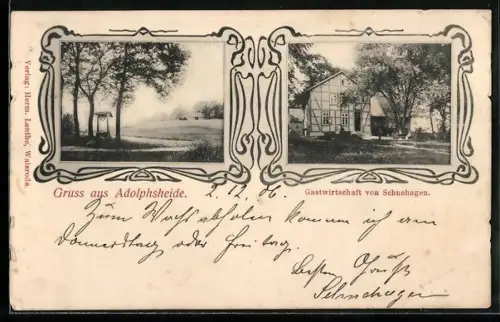 Verlag: Herm. Landto, Walsrode.
Gruss aus Adolphsheide. 2.12.06.
Gastwirtschaft von Schuehagen.
Zum abholen komme ich am
Donnerstag oder Freitag.
Besten Gruß
Schuehagen